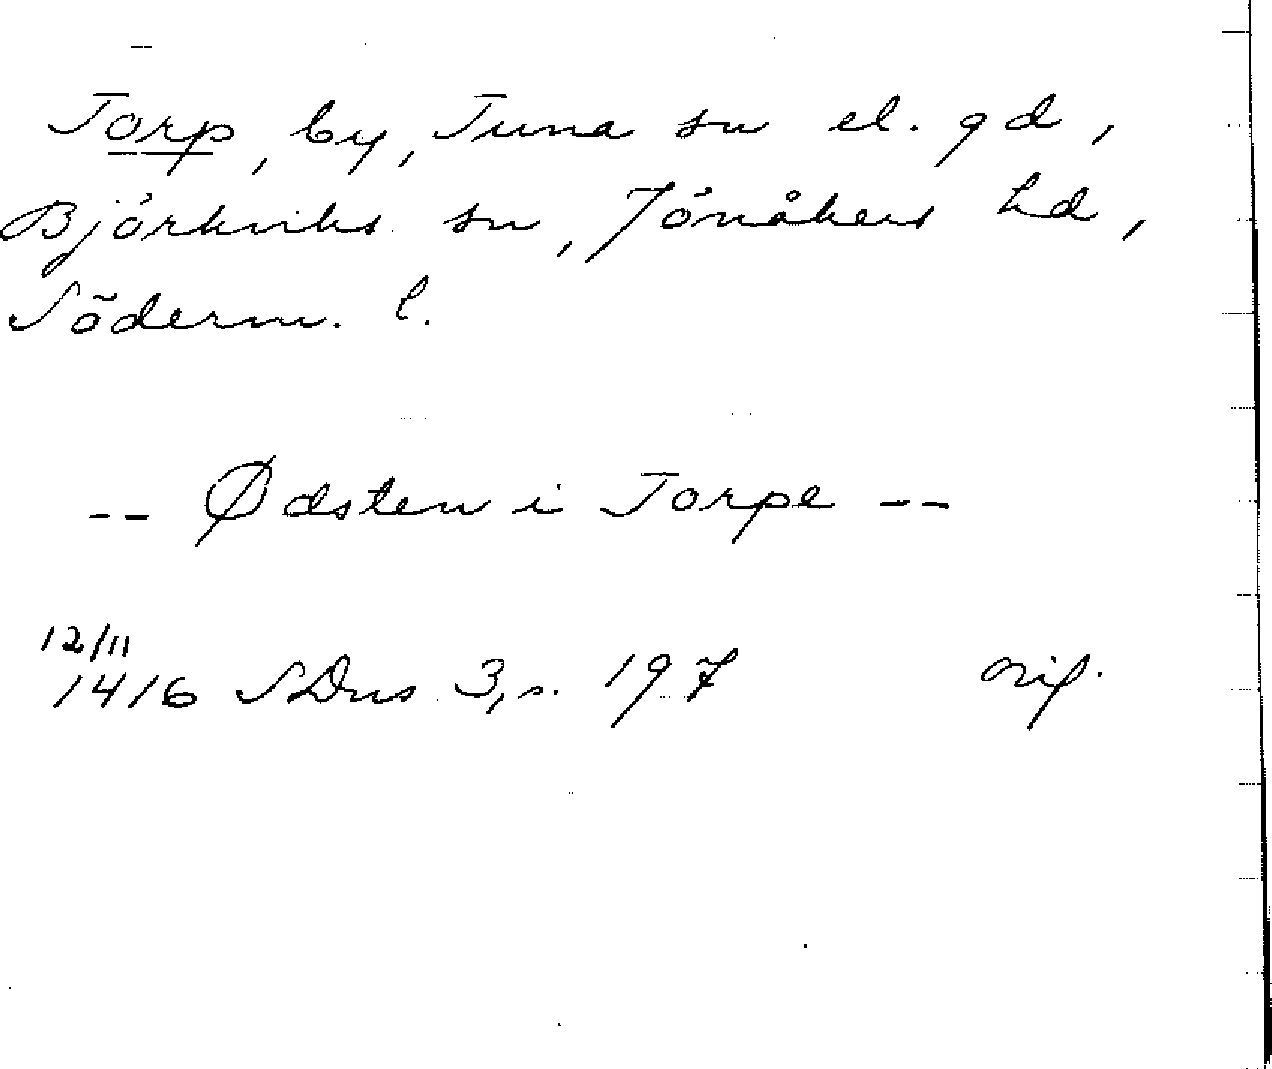 Torp, by, Tuna sn el. gd,
Björkviks sn, Jönåkers hd,
Söderm. l.
-- Ødsten i Torpe --
12/11
1416 SDns 3, s. 197